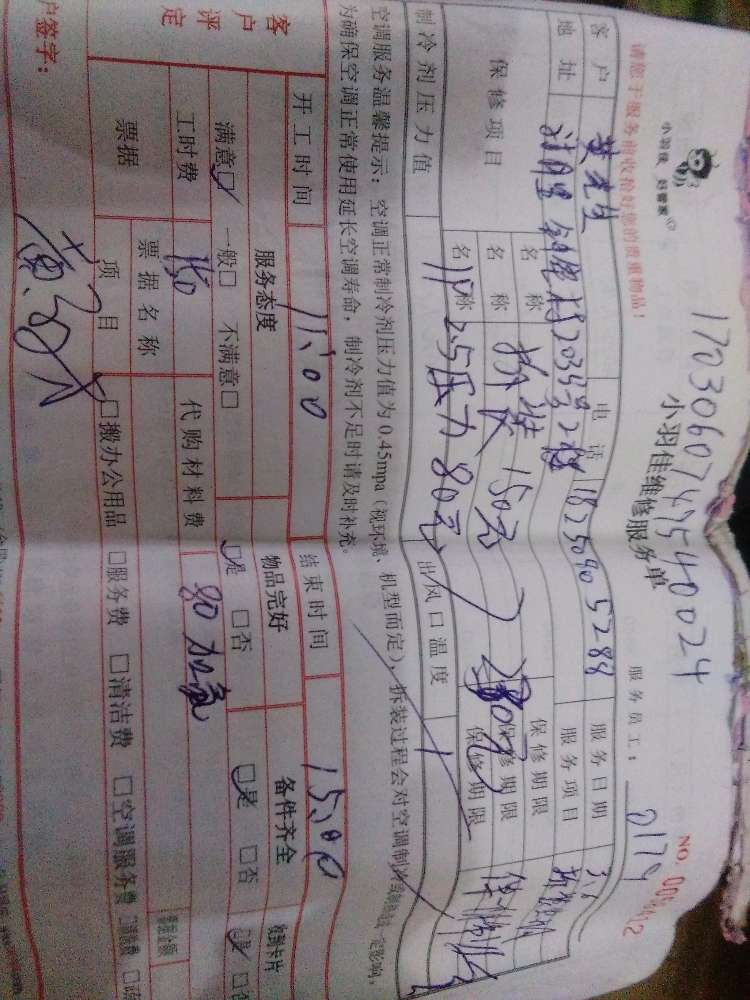 请您于服务前收拾好您的贵重物品！
小羽佳 好管家
170306074540024
小羽佳维修服务单
NO.
服务员工： 0179
客户 黄先生 电话 18250905288 服务日期
地址 2035号2楼 服务项目
保修项目 名称 拆装 150元 保修期限
名称 保修期限
名称 1P 2.5压力 80元 保修期限
制冷剂压力值 出风口温度
空调服务温馨提示：空调正常制冷剂压力值为0.45mpa（视环境、机型而定），拆装过程会对空调制冷
为确保空调正常使用延长空调寿命，制冷剂不足时请及时补充。
开工时间 11:00 结束时间 15:00
客户评定 服务态度 物品完好 备件齐全 收到卡片
满意☑ 一般□ 不满意□ ☑是 □否 ☑是 □否 ☑是 □否
工时费 150 代购材料费 80 加氟
票据 票据名称 票据金额
项目 □搬办公用品 □服务费 □清洁费 □空调服务费
户签字：